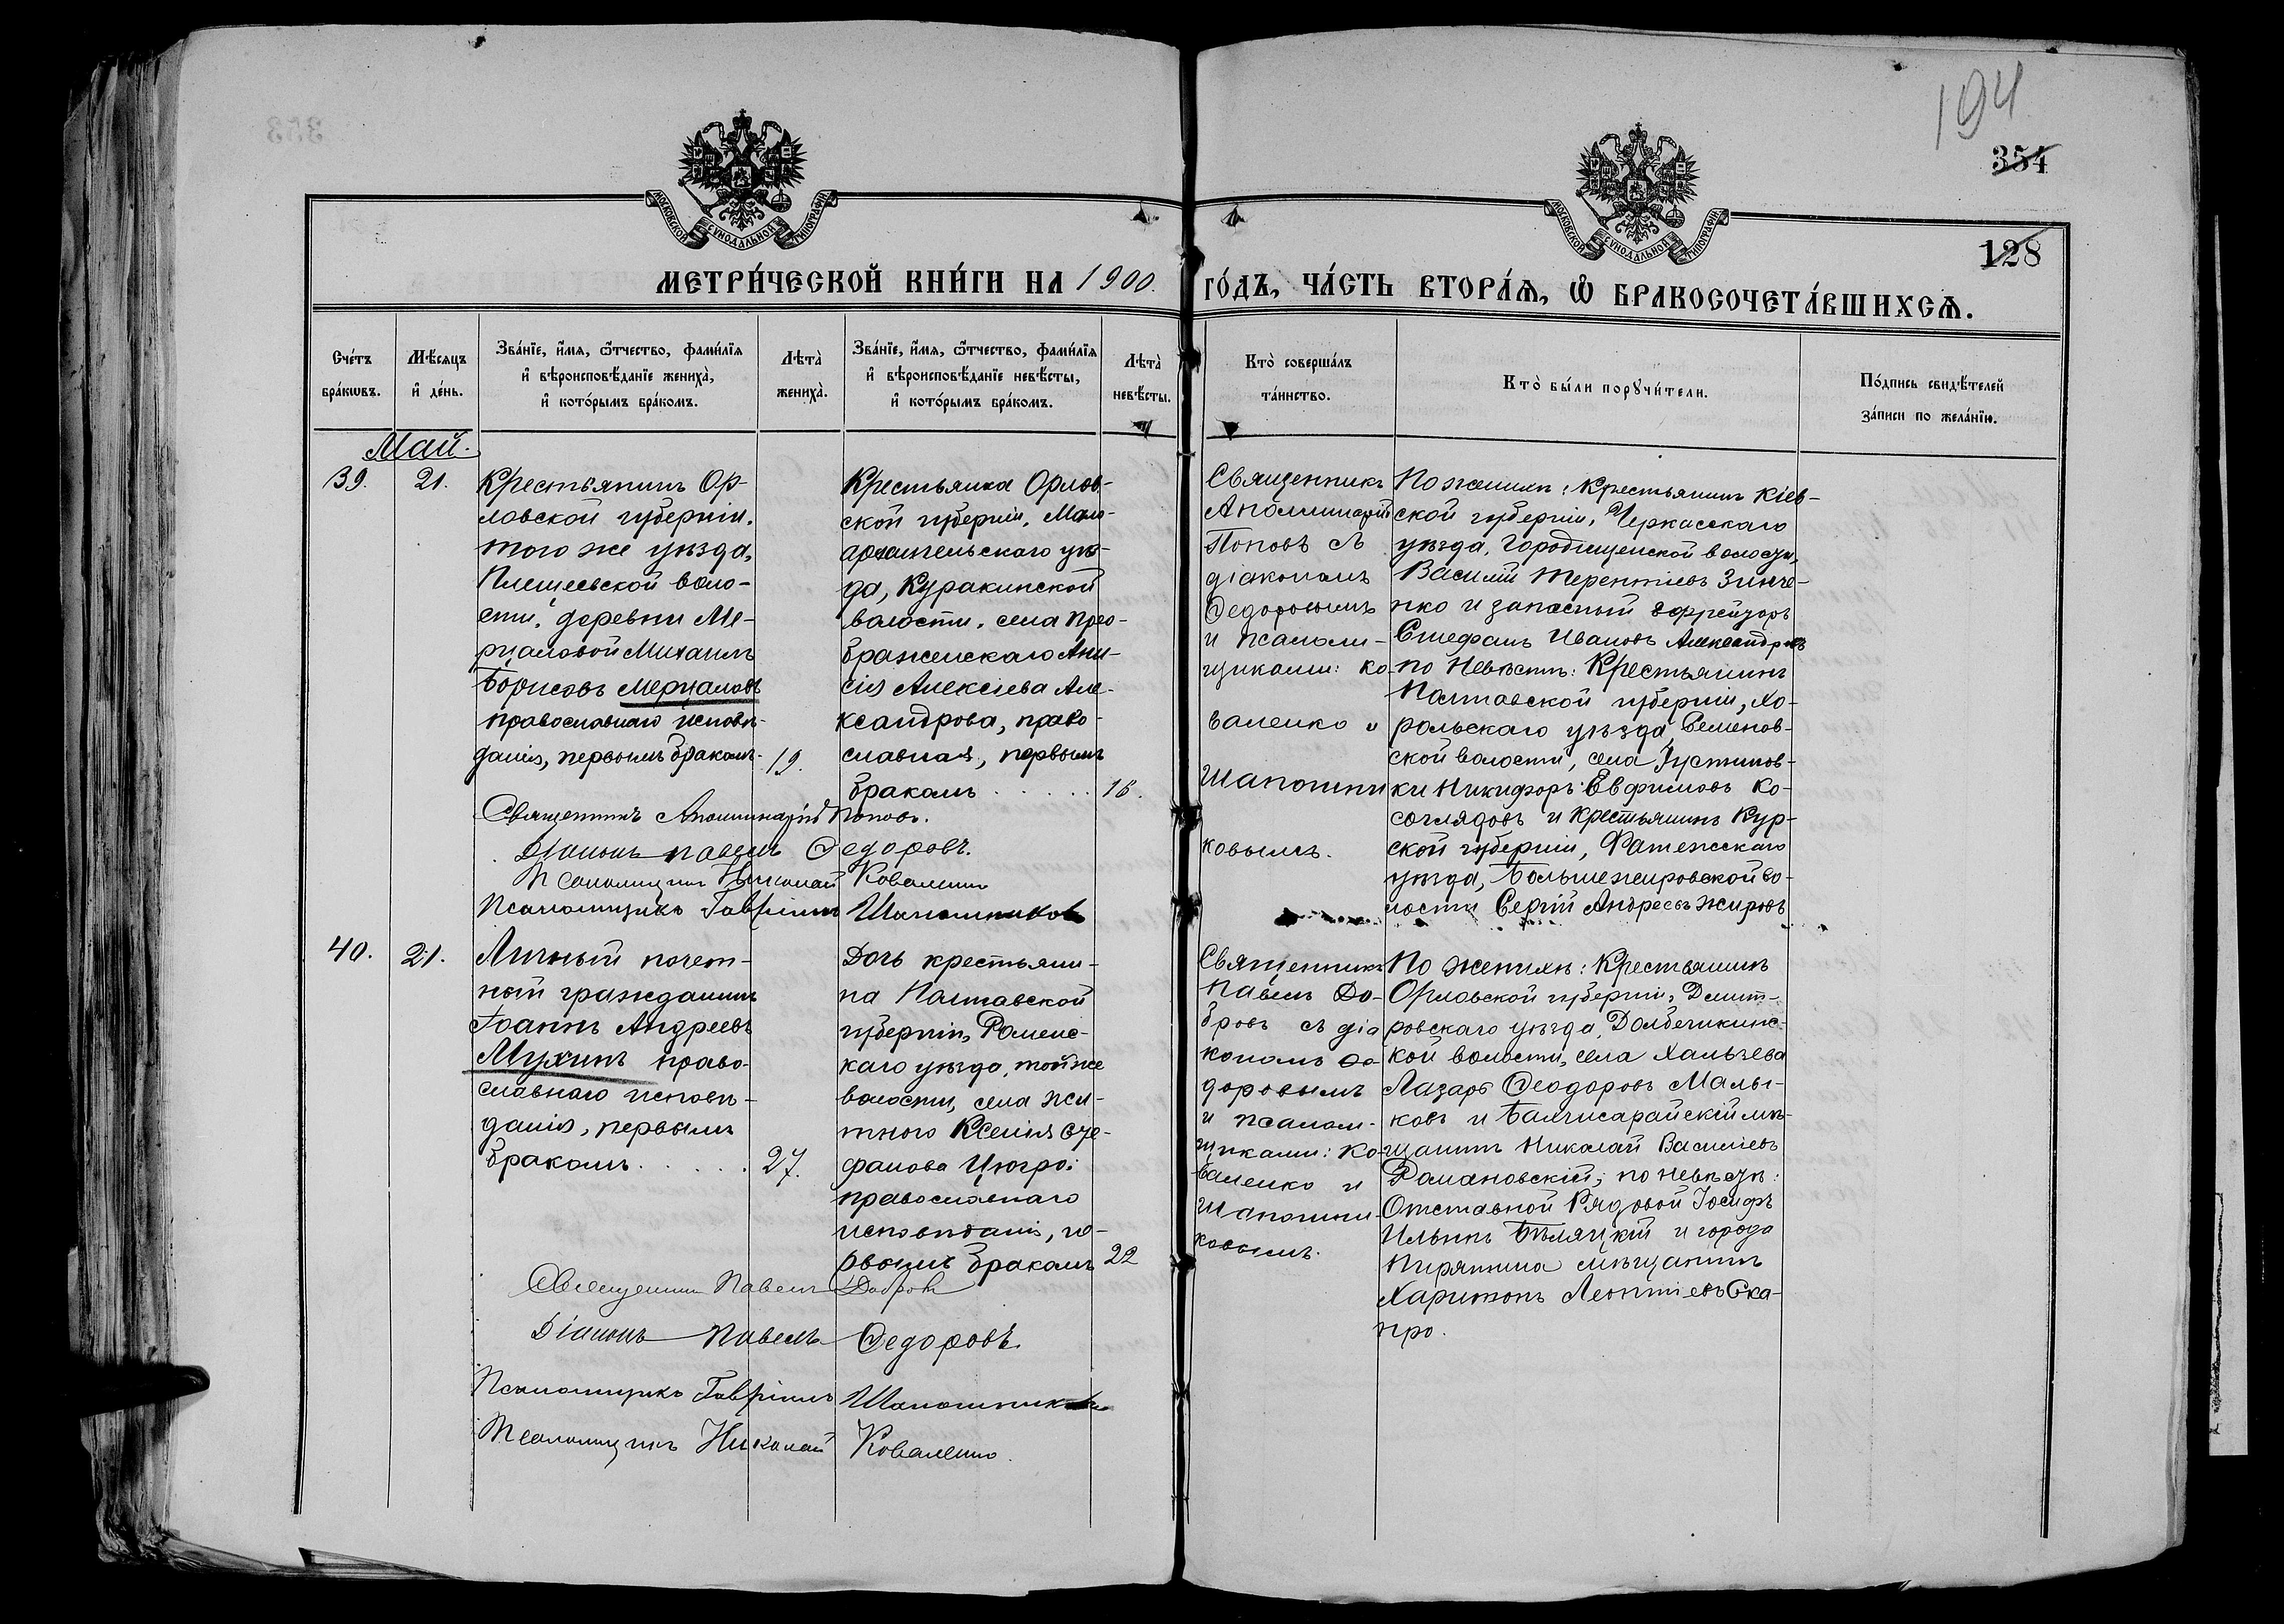 194
354
128
МОСКОВСКОЙ СѴНОДАЛЬНОЙ ТИПОГРАФІИ.
МОСКОВСКОЙ СѴНОДАЛЬНОЙ ТИПОГРАФІИ.
МЕТРИ́ЧЕСКОЙ КНИ́ГИ НА 1900.
ГО́ДЪ, ЧА́СТЬ ВТОРА́Ѧ, Ѡ҆ БРАКОСОЧЕТА́ВШИХСѦ.
Сче́тъ
бра́кѡвъ.
Мѣ́сѧцъ
и҆ де́нь.
Зва́нїе, и҆́мѧ, ѻ҆́тчество, фами́лїѧ
и҆ вѣроисповѣ́данїе жениха̀,
и҆ кото́рымъ бра́комъ.
Лѣта̀
жениха̀.
Зва́нїе, и҆́мѧ, ѻ҆́тчество, фами́лїѧ
и҆ вѣроисповѣ́данїе невѣ́сты,
и҆ кото́рымъ бра́комъ.
Лѣта̀
невѣ́сты.
Кто̀ соверша́лъ
та́инство.
Кто̀ бы́ли порꙋчи́тели.
По́дпись свидѣ́телей
за́писи по жела́нїю.
Май.
39.
21.
Крестьянинъ Ор-
ловской губерніи,
того же уѣзда,
Плещеевской воло-
сти, деревни Ме-
рцаловой Михаилъ
Борисовъ Мерцаловъ
православнаго исповѣ-
данія, первымъ бракомъ.
19.
Крестьянка Орлов-
ской губерніи, Мало-
архангельскаго уѣз-
да, Куракинской
волости, села Прео-
браженскаго Ани-
сія Алексіева Але-
ксандрова, право-
славная, первымъ
бракомъ . . . . .
16.
Священникъ
Аполлинарій
Поповъ съ
діакономъ
Ѳедоровымъ
и псалом-
щиками: Ко-
валенко и
Шапошни
ковымъ.
По женихѣ: Крестьянинъ Кіев-
ской губерніи, Черкасскаго
уѣзда, Городищенской волости,
Василій Терентіевъ Зинче-
нко и запасный ефрейторъ
Стефанъ Ивановъ Александровъ
по Невѣстѣ: Крестьянинъ
Полтавской губерніи, Хо-
рольскаго уѣзда, Семенов-
ской волости, села Устинов-
ки Никифоръ Евфимовъ Ко-
соглядовъ и крестьянинъ Кур-
ской губерніи, Фатежскаго
уѣзда, Большежировской во-
лости Сергій Андреевъ Жировъ
Священникъ Аполлинарій Поповъ.
Діаконъ Павелъ Ѳедоровъ.
Псаломщикъ Николай Коваленко
Псаломщикъ Гавріилъ Шапошниковъ
40.
21.
Личный почет-
ный гражданинъ
Іоаннъ Андреевъ
Мухинъ право-
славнаго исповѣ-
данія, первымъ
бракомъ . . . . .
27.
Дочь крестьяни-
на Полтавской
губерніи, Роменс-
каго уѣзда, той же
волости, села Жи-
тного Ксенія Сте-
фанова
православнаго
исповѣданія, пе-
рвымъ бракомъ
22
Священникъ
Павелъ До-
бровъ съ діа
кономъ Ѳе-
доровымъ
и псалом-
щиками: Ко-
валенко и
Шапошни-
ковымъ.
По женихѣ: Крестьянинъ
Орловской губерніи, Дмит-
ровскаго уѣзда,
кой волости, села
Лазарь Ѳеодоровъ Малы-
ковъ и Бахчисарайскій мѣ-
щанинъ Николай Василіевъ
Романовскій; по невѣстѣ:
Отставной Рядовой Іосифъ
Ильинъ Бѣляцкій и города
Пирятина мѣщанинъ
Харитонъ Леонтіевъ Ска-
про.
Священникъ Павелъ Добровъ
Діаконъ Павелъ Ѳедоровъ.
Псаломщикъ Гавріилъ Шапошниковъ
Псаломщикъ Николай Коваленко.